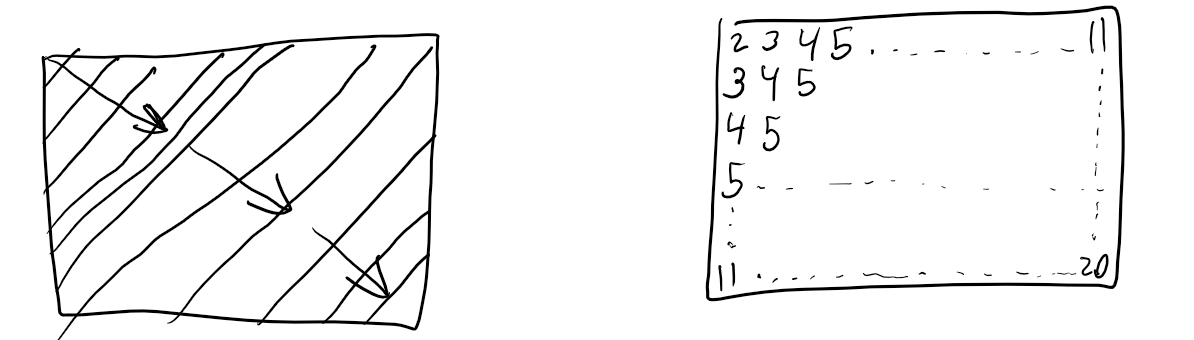 2 3 4 5 . . . . . . 11
3 4 5
4 5
5
11 . . . . . . 20